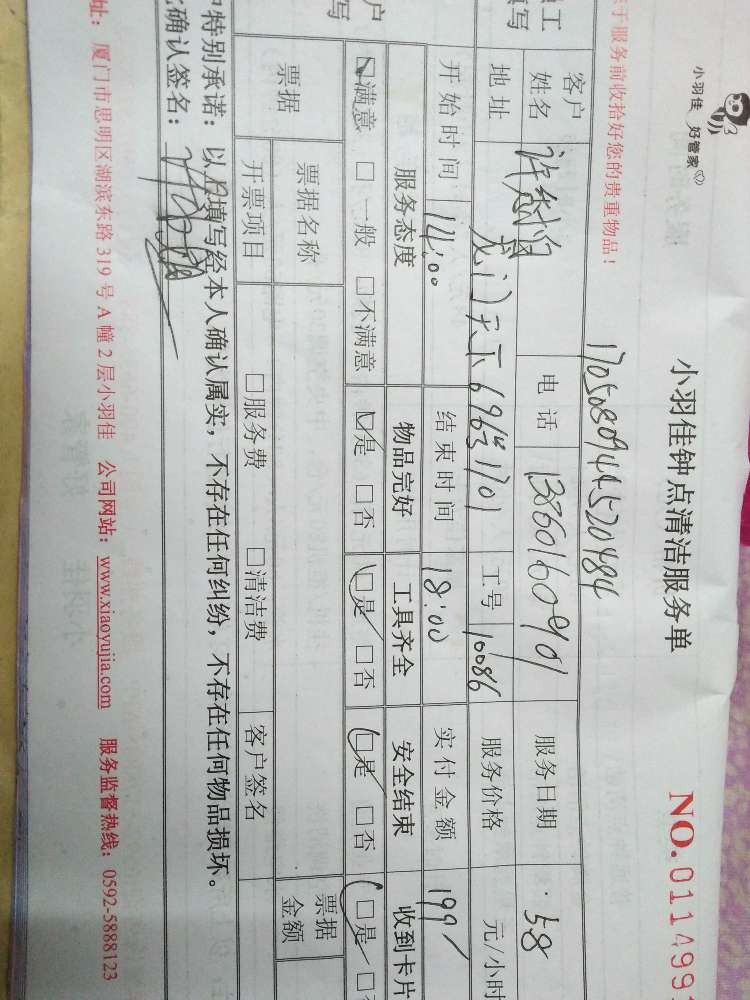 小羽佳 好管家
小羽佳钟点清洁服务单
NO.011499
于服务前收拾好您的贵重物品！
17050809444520484
客户姓名
电话 13860160901
服务日期 58
地址 龙门天下696号1701
工号 10086
服务价格 元/小时
开始时间 14:00
结束时间 18:00
实付金额 199
服务态度 物品完好 工具齐全 安全结束 收到卡片
☑满意 □一般 □不满意 ☑是 □否 ☑是 □否 ☑是 □否 ☑是 □
票据 票据名称 票据金额
开票项目 □服务费 □清洁费 客户签名
特别承诺：以上填写经本人确认属实，不存在任何纠纷，不存在任何物品损坏。
确认签名：
址：厦门市思明区湖滨东路319号A幢2层小羽佳 公司网站：www.xiaoyujia.com 服务监督热线：0592-5888123